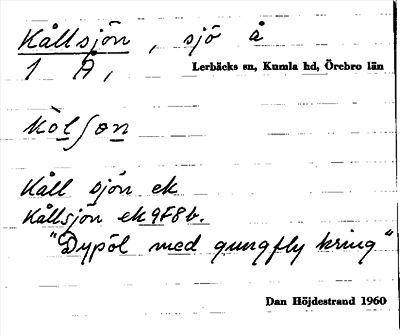 Kållsjön, sjö å
1 A,
Lerbäcks sn, Kumla hd, Örebro län
kòlʃøn
Kåll sjön ek
Kållsjön ek 9F8b.
"Dypöl med gungfly kring"
Dan Höjdestrand 1960